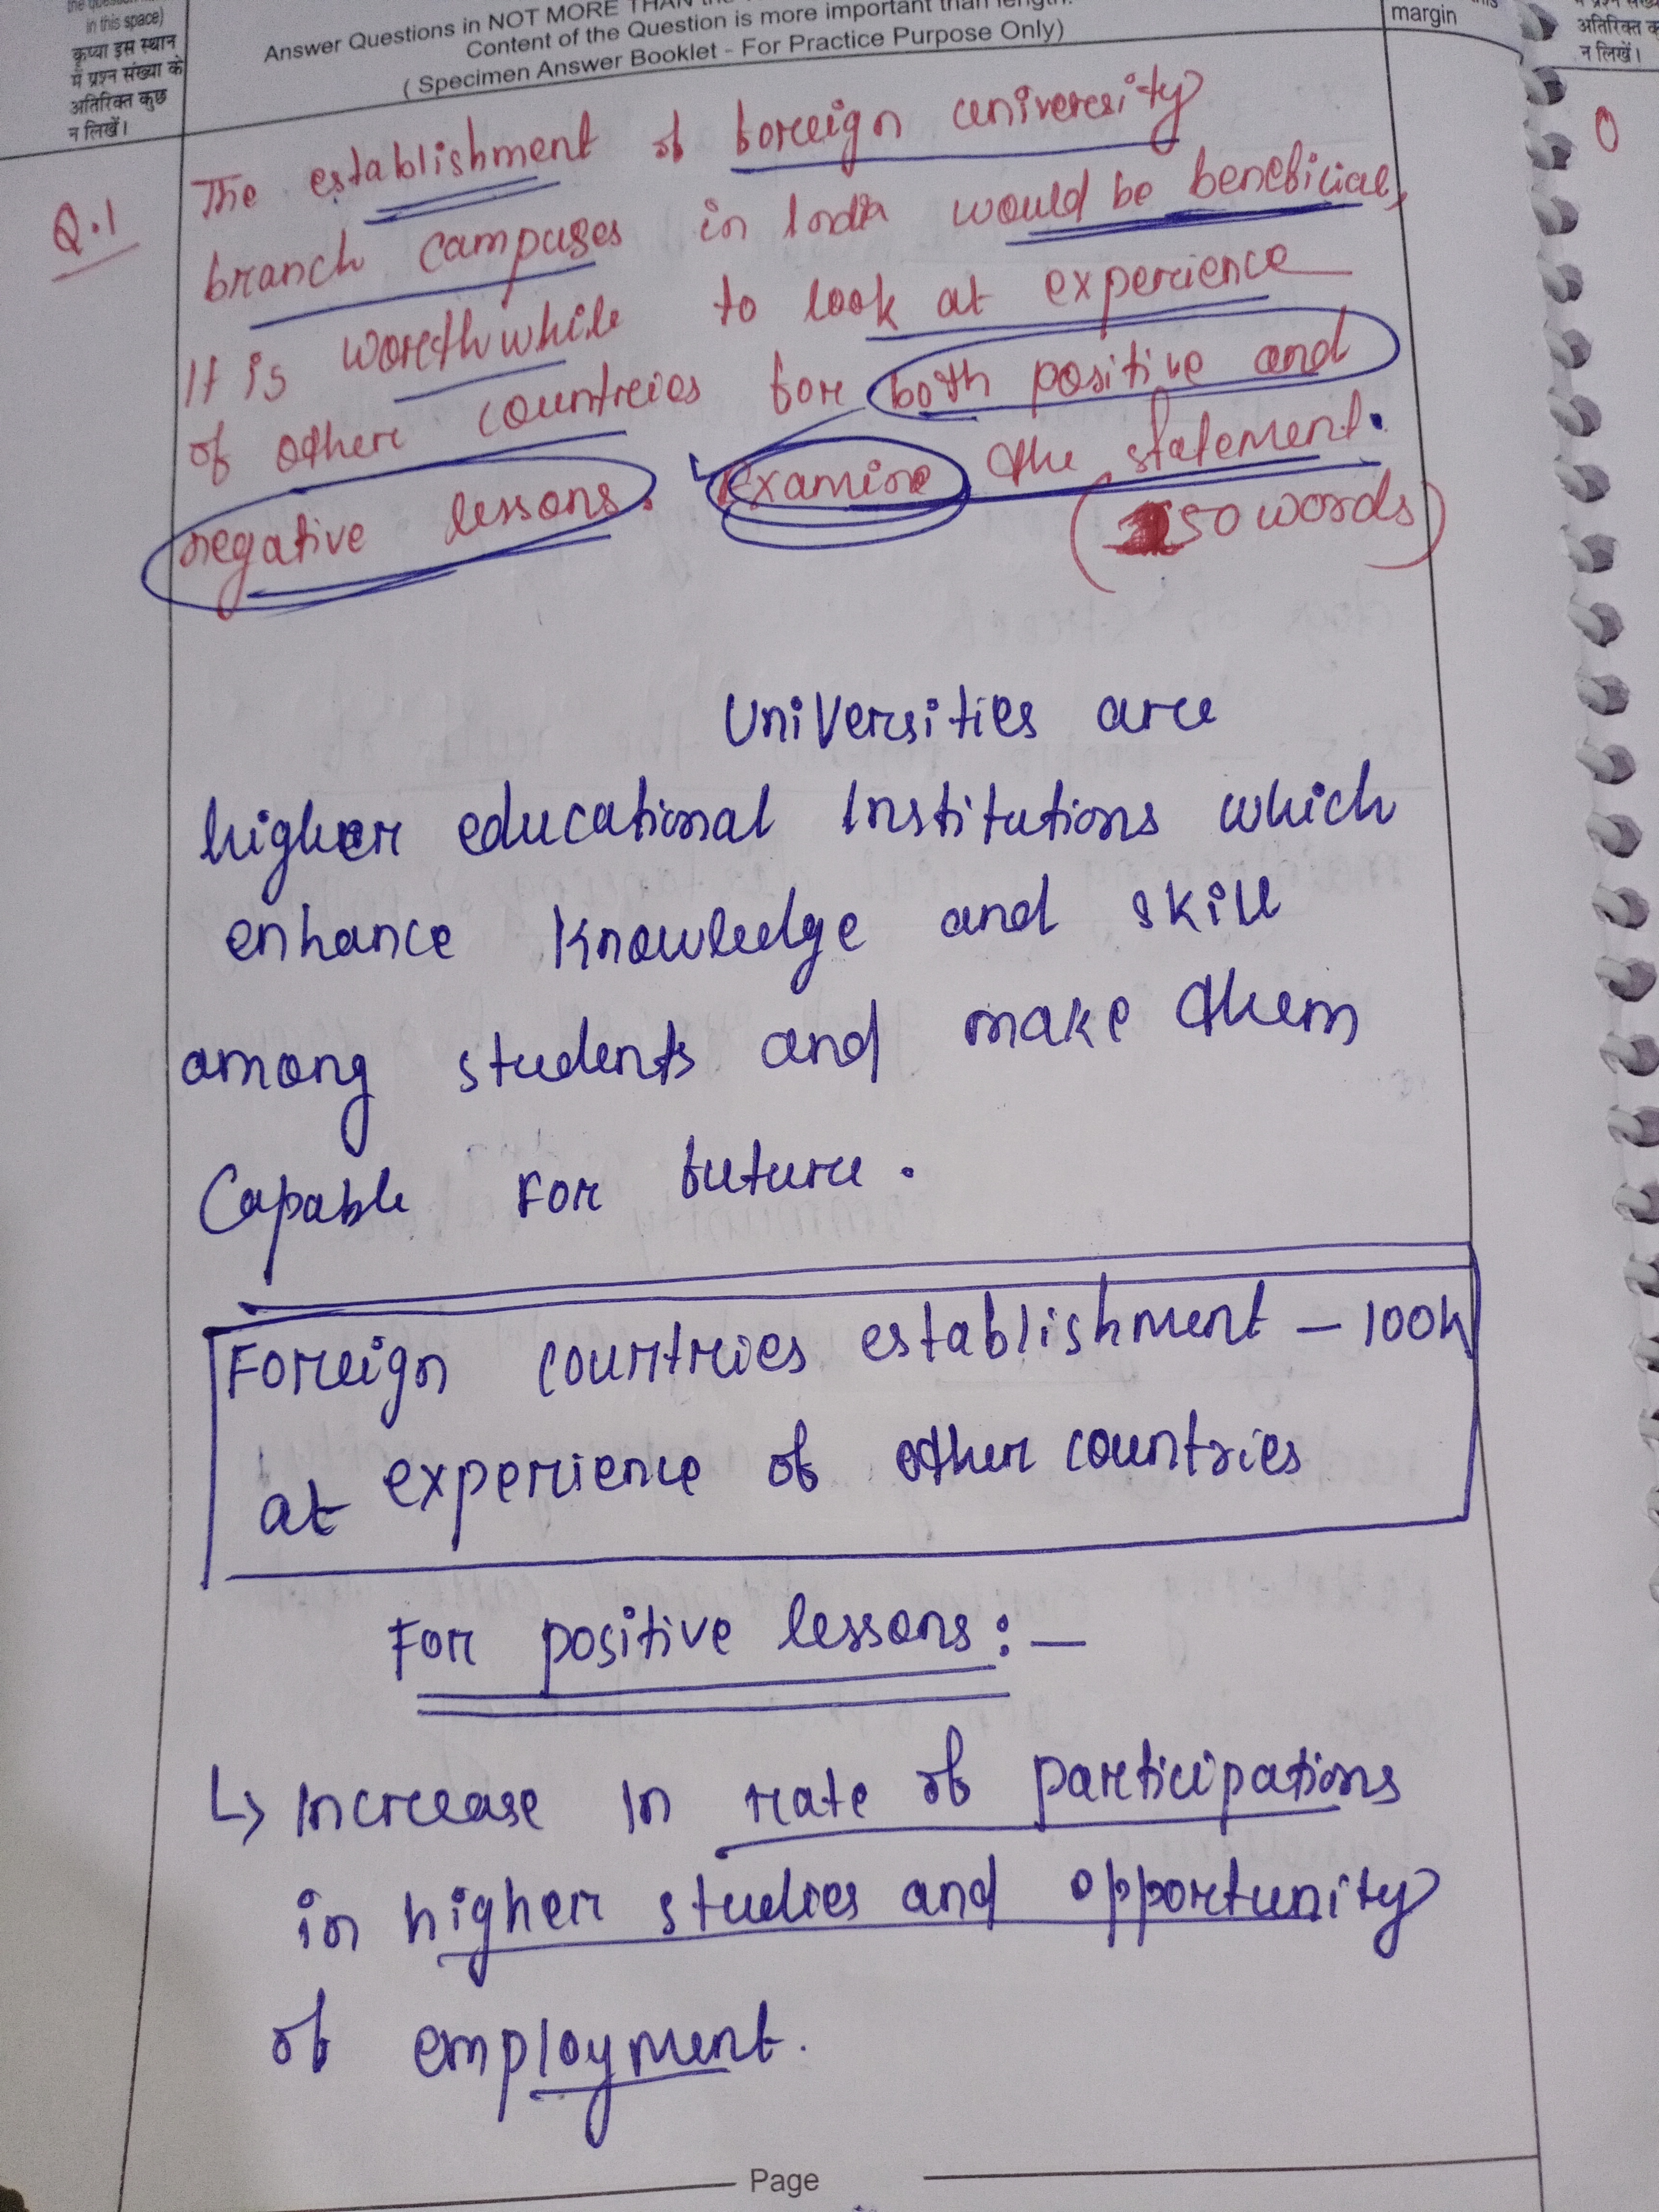 in this space)
कृप्या इस स्थान
में प्रश्न संख्या के
अतिरिक्त कुछ
न लिखें।
Answer Questions in NOT MORE THAN the
Content of the Question is more important than length.
( Specimen Answer Booklet - For Practice Purpose Only)
margin
अतिरिक्त
न लिखें।
Q.1
The establishment of foreign university
branch campuses in India would be beneficial,
It is worthwhile to look at experience
of other countries for both positive and
negative lessons. Examine the statement.
(150 words)
Universities are
higher educational Institutions which
enhance knowledge and skill
among students and make them
Capable For future.
Foreign countries establishment - look
at experience of other countries
For positive lessons : -
↳ Increase in rate of participations
in higher studies and opportunity
of employment.
Page